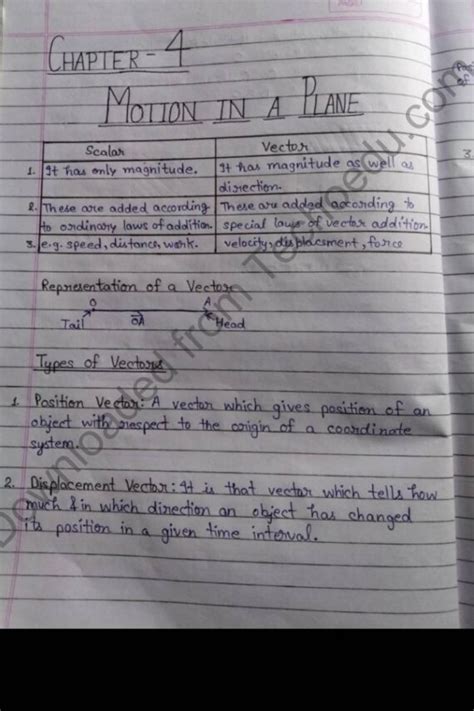 CHAPTER - 4
MOTION IN A PLANE
Scalar Vector
1. It has only magnitude. It has magnitude as well as
direction.
2. These are added according These are added according to
to ordinary laws of addition. special laws of vector addition
3. e.g. speed, distance, work. velocity, displacement, force
Representation of a Vector
O A
Tail OA Head
Types of Vectors
1. Position Vector: A vector which gives position of an
object with respect to the origin of a coordinate
system.
2. Displacement Vector: It is that vector which tells how
much & in which direction an object has changed
its position in a given time interval.
Downloaded from